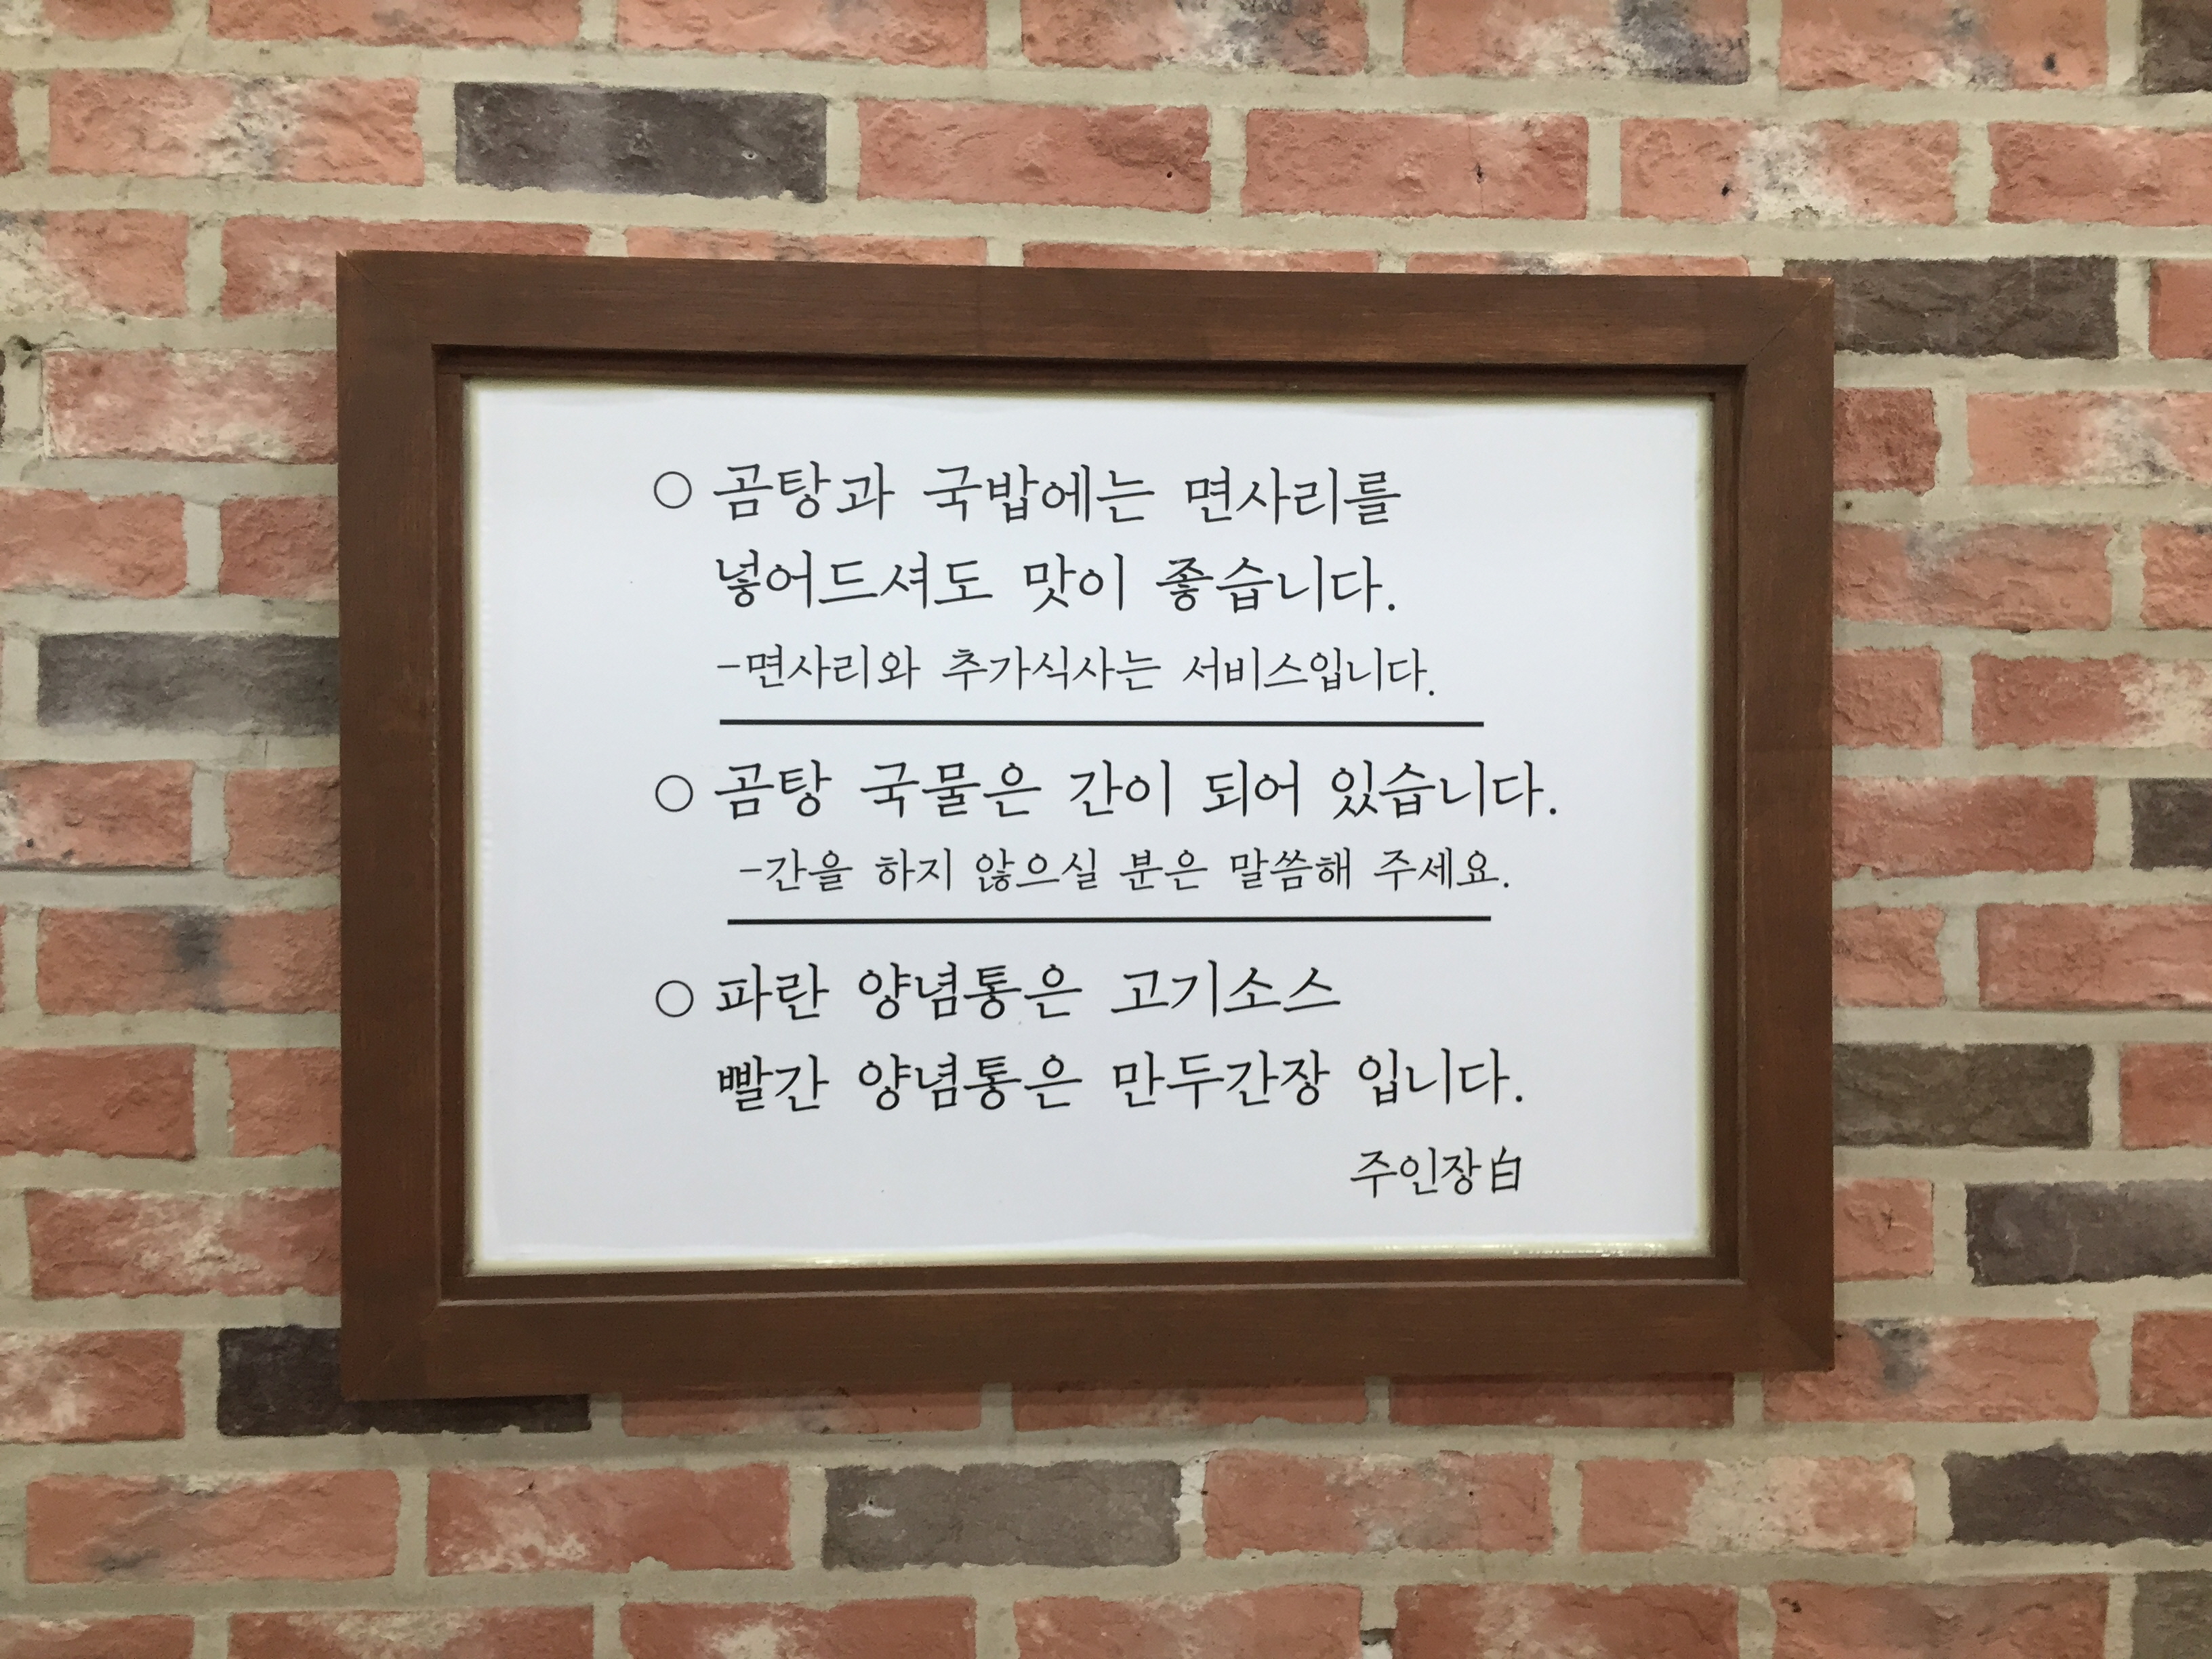 ○ 곰탕과 국밥에는 면사리를
넣어드셔도 맛이 좋습니다.
-면사리와 추가식사는 서비스입니다.
○ 곰탕 국물은 간이 되어 있습니다.
-간을 하지 않으실 분은 말씀해 주세요.
○ 파란 양념통은 고기소스
빨간 양념통은 만두간장 입니다.
주인장白